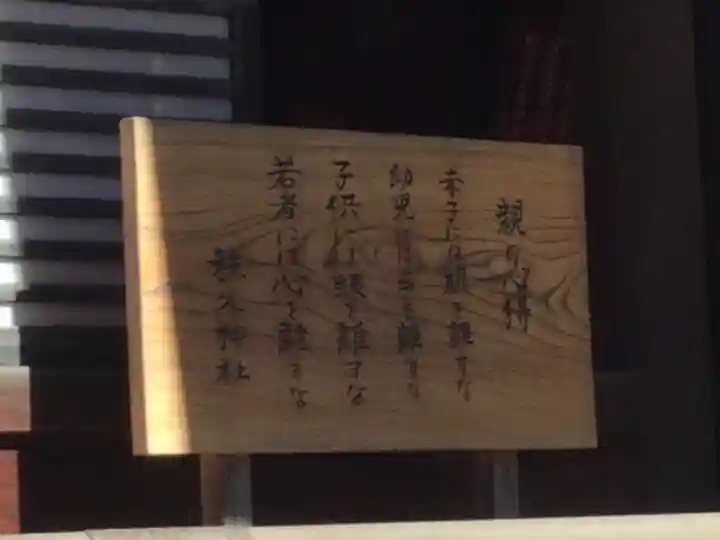 親の心得
赤子には肌を離すな
幼児には手を離すな
子供には眼を離すな
若者には心を離すな
久神社